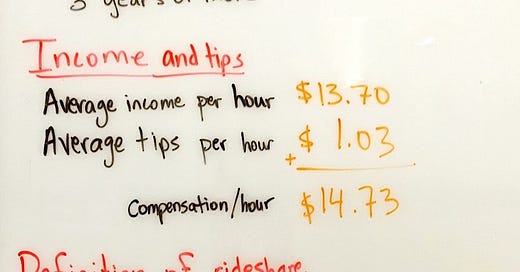 3 years or more
Income and tips
Average income per hour $13.70
Average tips per hour + $ 1.03
Compensation/hour $14.73
Definition of rideshare